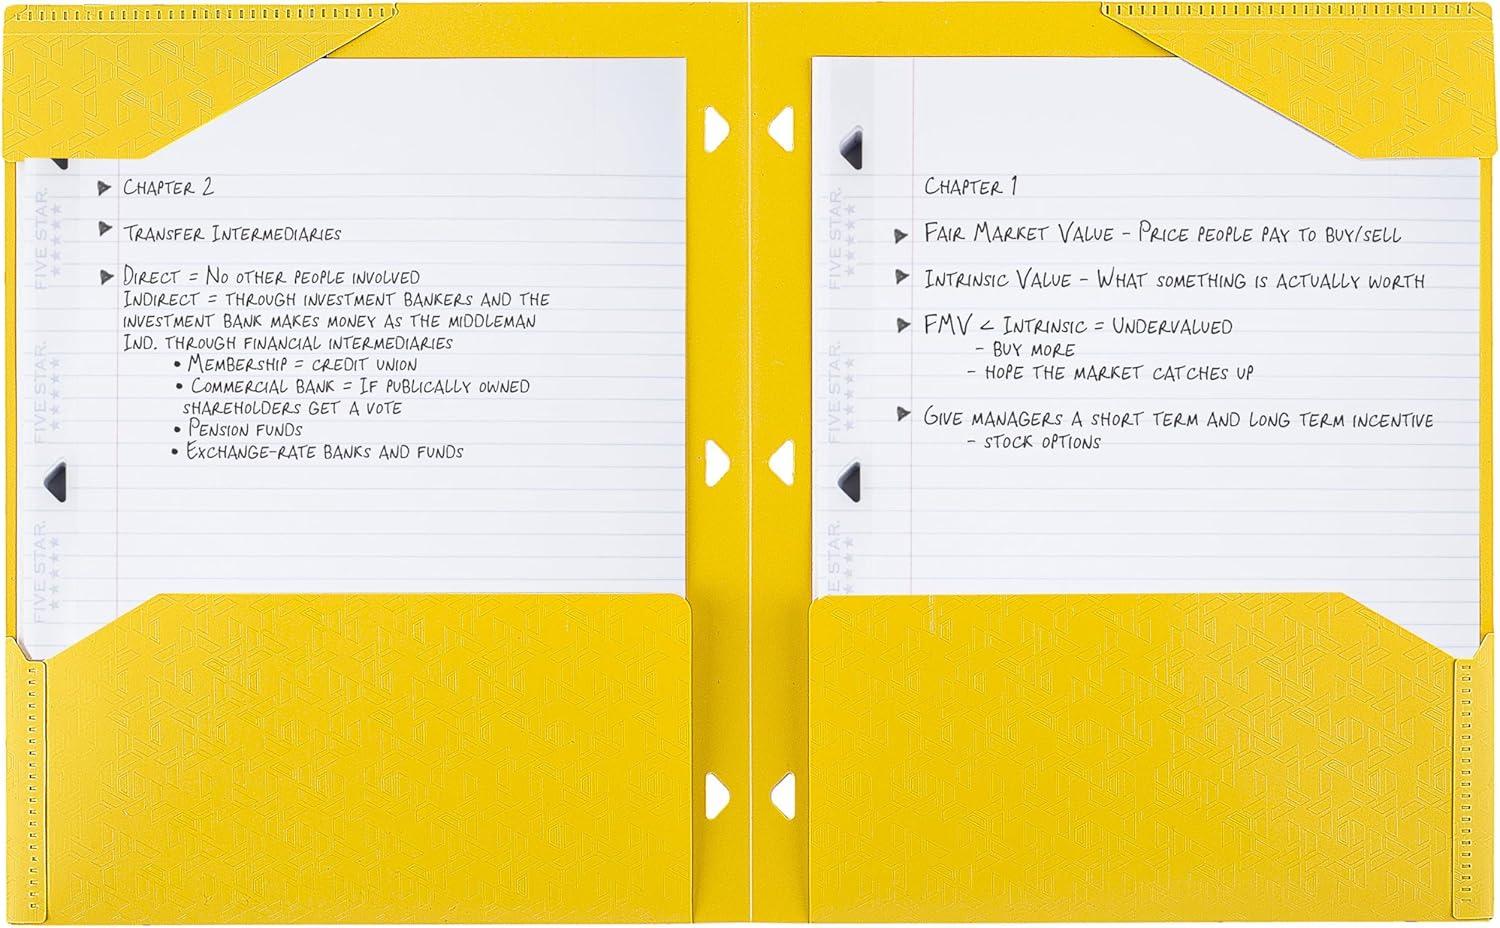 ▶ CHAPTER 2
▶ TRANSFER INTERMEDIARIES
▶ DIRECT = NO OTHER PEOPLE INVOLVED
INDIRECT = THROUGH INVESTMENT BANKERS AND THE
INVESTMENT BANK MAKES MONEY AS THE MIDDLEMAN
IND. THROUGH FINANCIAL INTERMEDIARIES
• MEMBERSHIP = CREDIT UNION
• COMMERCIAL BANK = IF PUBLICALLY OWNED
SHAREHOLDERS GET A VOTE
• PENSION FUNDS
• EXCHANGE-RATE BANKS AND FUNDS
FIVE STAR.
FIVE STAR.
FIVE STAR.
CHAPTER 1
▶ FAIR MARKET VALUE - PRICE PEOPLE PAY TO BUY/SELL
▶ INTRINSIC VALUE - WHAT SOMETHING IS ACTUALLY WORTH
▶ FMV < INTRINSIC = UNDERVALUED
- BUY MORE
- HOPE THE MARKET CATCHES UP
▶ GIVE MANAGERS A SHORT TERM AND LONG TERM INCENTIVE
- STOCK OPTIONS
FIVE STAR.
FIVE STAR.
FIVE STAR.